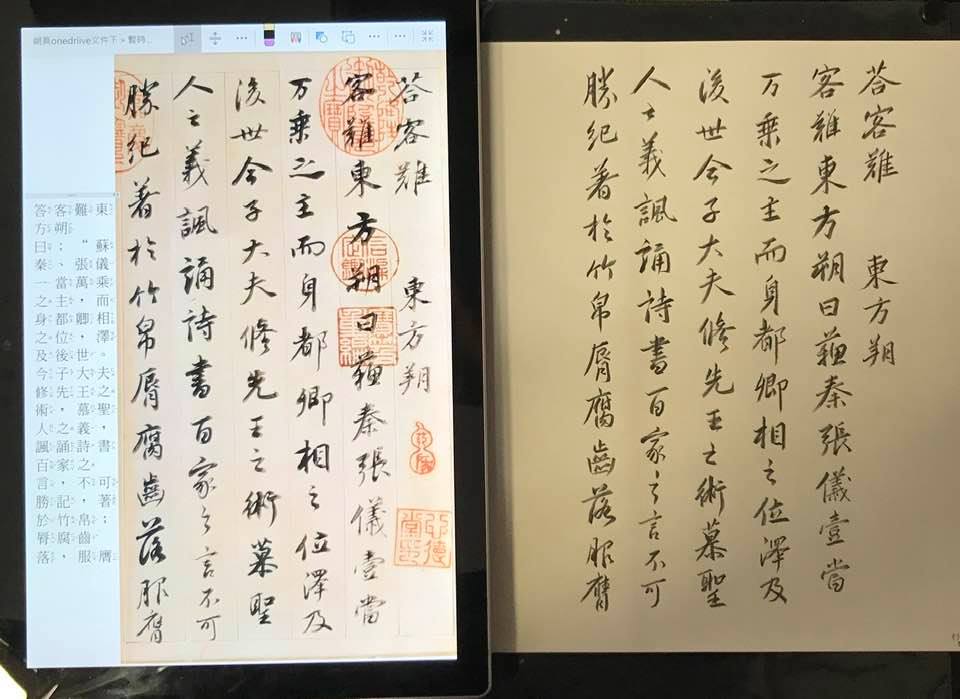 網頁onedriive文件下 > 暫時...
答客難東
方朔
曰：“蘇
秦、張儀
一當萬乘
之主，而
身都卿相
之位，澤
及後世。
今子大夫
修先王之
術，慕聖
人之義，
諷誦詩書
百家之
言，不可
勝記，著
於竹帛；
脣腐齒
落，服膺
荅客難 東方朔
客難東方朔曰蘓秦張儀壹當
万乗之主而身都卿相之位澤及
後世今子大夫修先王之術慕聖
人之義諷誦詩書百家之言不可
勝紀著於竹帛脣腐齒落服膺
荅客難 東方朔
客難東方朔曰蘓秦張儀壹當
万乗之主而身都卿相之位澤及
後世今子大夫修先王之術慕聖
人之義諷誦詩書百家之言不可
勝紀著於竹帛脣腐齒落服膺